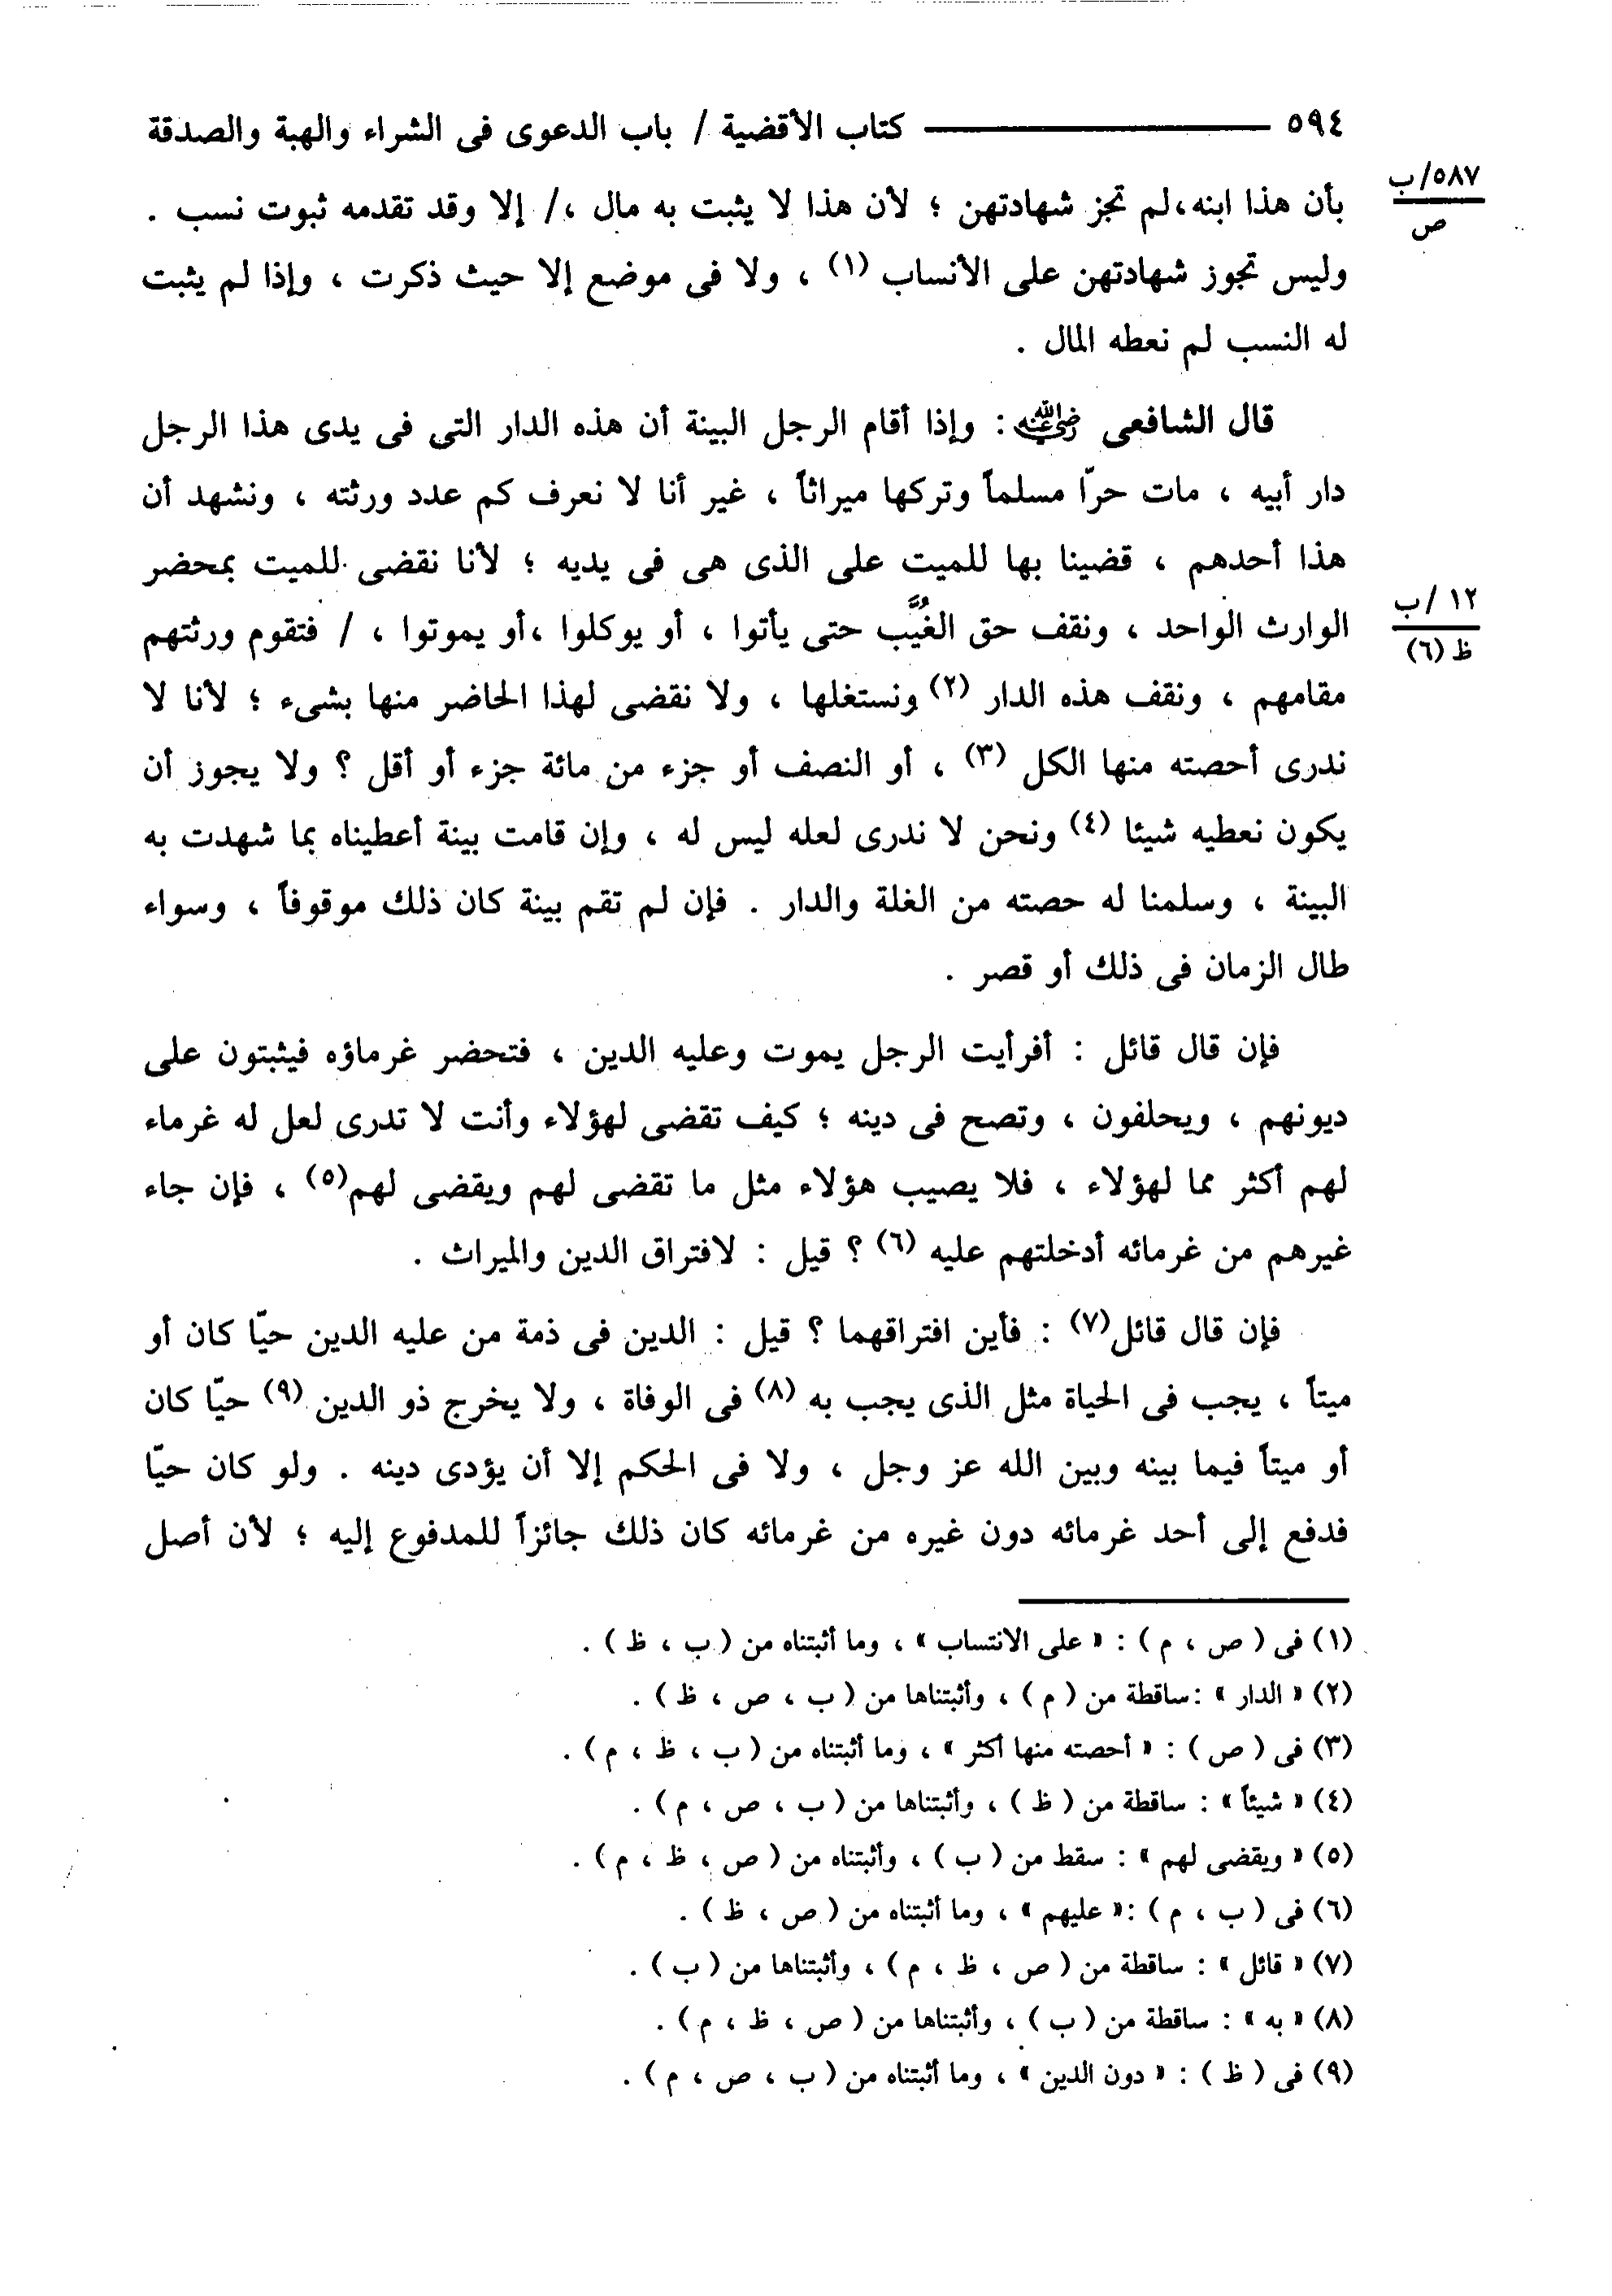 ٥٩٤ ــــــــــ كتاب الأقضية / باب الدعوى فى الشراء والهبة والصدقة
٥٨٧/ب
ص
بأن هذا ابنه،لم تجز شهادتهن ؛ لأن هذا لا يثبت به مال ،/ إلا وقد تقدمه ثبوت نسب .
وليس تجوز شهادتهن على الأنساب (١) ، ولا فى موضع إلا حيث ذكرت ، وإذا لم يثبت
له النسب لم نعطه المال .
قال الشافعى رضي الله عنه : وإذا أقام الرجل البينة أن هذه الدار التى فى يدى هذا الرجل
دار أبيه ، مات حرّا مسلماً وتركها ميراثاً ، غير أنا لا نعرف كم عدد ورثته ، ونشهد أن
هذا أحدهم ، قضينا بها للميت على الذى هى فى يديه ؛ لأنا نقضى للميت بمحضر
١٢ /ب
ظ (٦)
الوارث الواحد ، ونقف حق الغُيَّب حتى يأتوا ، أو يوكلوا ،أو يموتوا ، / فتقوم ورثتهم
مقامهم ، ونقف هذه الدار (٢) ونستغلها ، ولا نقضى لهذا الحاضر منها بشىء ؛ لأنا لا
ندرى أحصته منها الكل (٣) ، أو النصف أو جزء من مائة جزء أو أقل ؟ ولا يجوز أن
يكون نعطيه شيئا (٤) ونحن لا ندرى لعله ليس له ، وإن قامت بينة أعطيناه بما شهدت به
البينة ، وسلمنا له حصته من الغلة والدار . فإن لم تقم بينة كان ذلك موقوفاً ، وسواء
طال الزمان فى ذلك أو قصر .
فإن قال قائل : أفرأيت الرجل يموت وعليه الدين ، فتحضر غرماؤه فيثبتون على
ديونهم ، ويحلفون ، وتصح فى دينه ؛ كيف تقضى لهؤلاء وأنت لا تدرى لعل له غرماء
لهم أكثر مما لهؤلاء ، فلا يصيب هؤلاء مثل ما تقضى لهم ويقضى لهم(٥) ، فإن جاء
غيرهم من غرمائه أدخلتهم عليه (٦) ؟ قيل : لافتراق الدين والميراث .
فإن قال قائل(٧) : فأين افتراقهما ؟ قيل : الدين فى ذمة من عليه الدين حيّا كان أو
ميتاً ، يجب فى الحياة مثل الذى يجب به (٨) فى الوفاة ، ولا يخرج ذو الدين (٩) حيّا كان
أو ميتاً فيما بينه وبين الله عز وجل ، ولا فى الحكم إلا أن يؤدى دينه . ولو كان حيّا
فدفع إلى أحد غرمائه دون غيره من غرمائه كان ذلك جائزاً للمدفوع إليه ؛ لأن أصل
(١) فى ( ص ، م ) : « على الانتساب » ، وما أثبتناه من ( ب ، ظ ) .
(٢) « الدار » :ساقطة من ( م ) ، وأثبتناها من ( ب ، ص ، ظ ) .
(٣) فى ( ص ) : « أحصته منها أكثر » ، وما أثبتناه من ( ب ، ظ ، م ) .
(٤) « شيئاً » : ساقطة من ( ظ ) ، وأثبتناها من ( ب ، ص ، م ) .
(٥) « ويقضى لهم » : سقط من ( ب ) ، وأثبتناه من ( ص ، ظ ، م ) .
(٦) فى ( ب ، م ) :« عليهم » ، وما أثبتناه من ( ص ، ظ ) .
(٧) « قائل » : ساقطة من ( ص ، ظ ، م ) ، وأثبتناها من ( ب ) .
(٨) « به » : ساقطة من ( ب ) ، وأثبتناها من ( ص ، ظ ، م ) .
(٩) فى ( ظ ) : « دون الدين » ، وما أثبتناه من ( ب ، ص ، م ) .